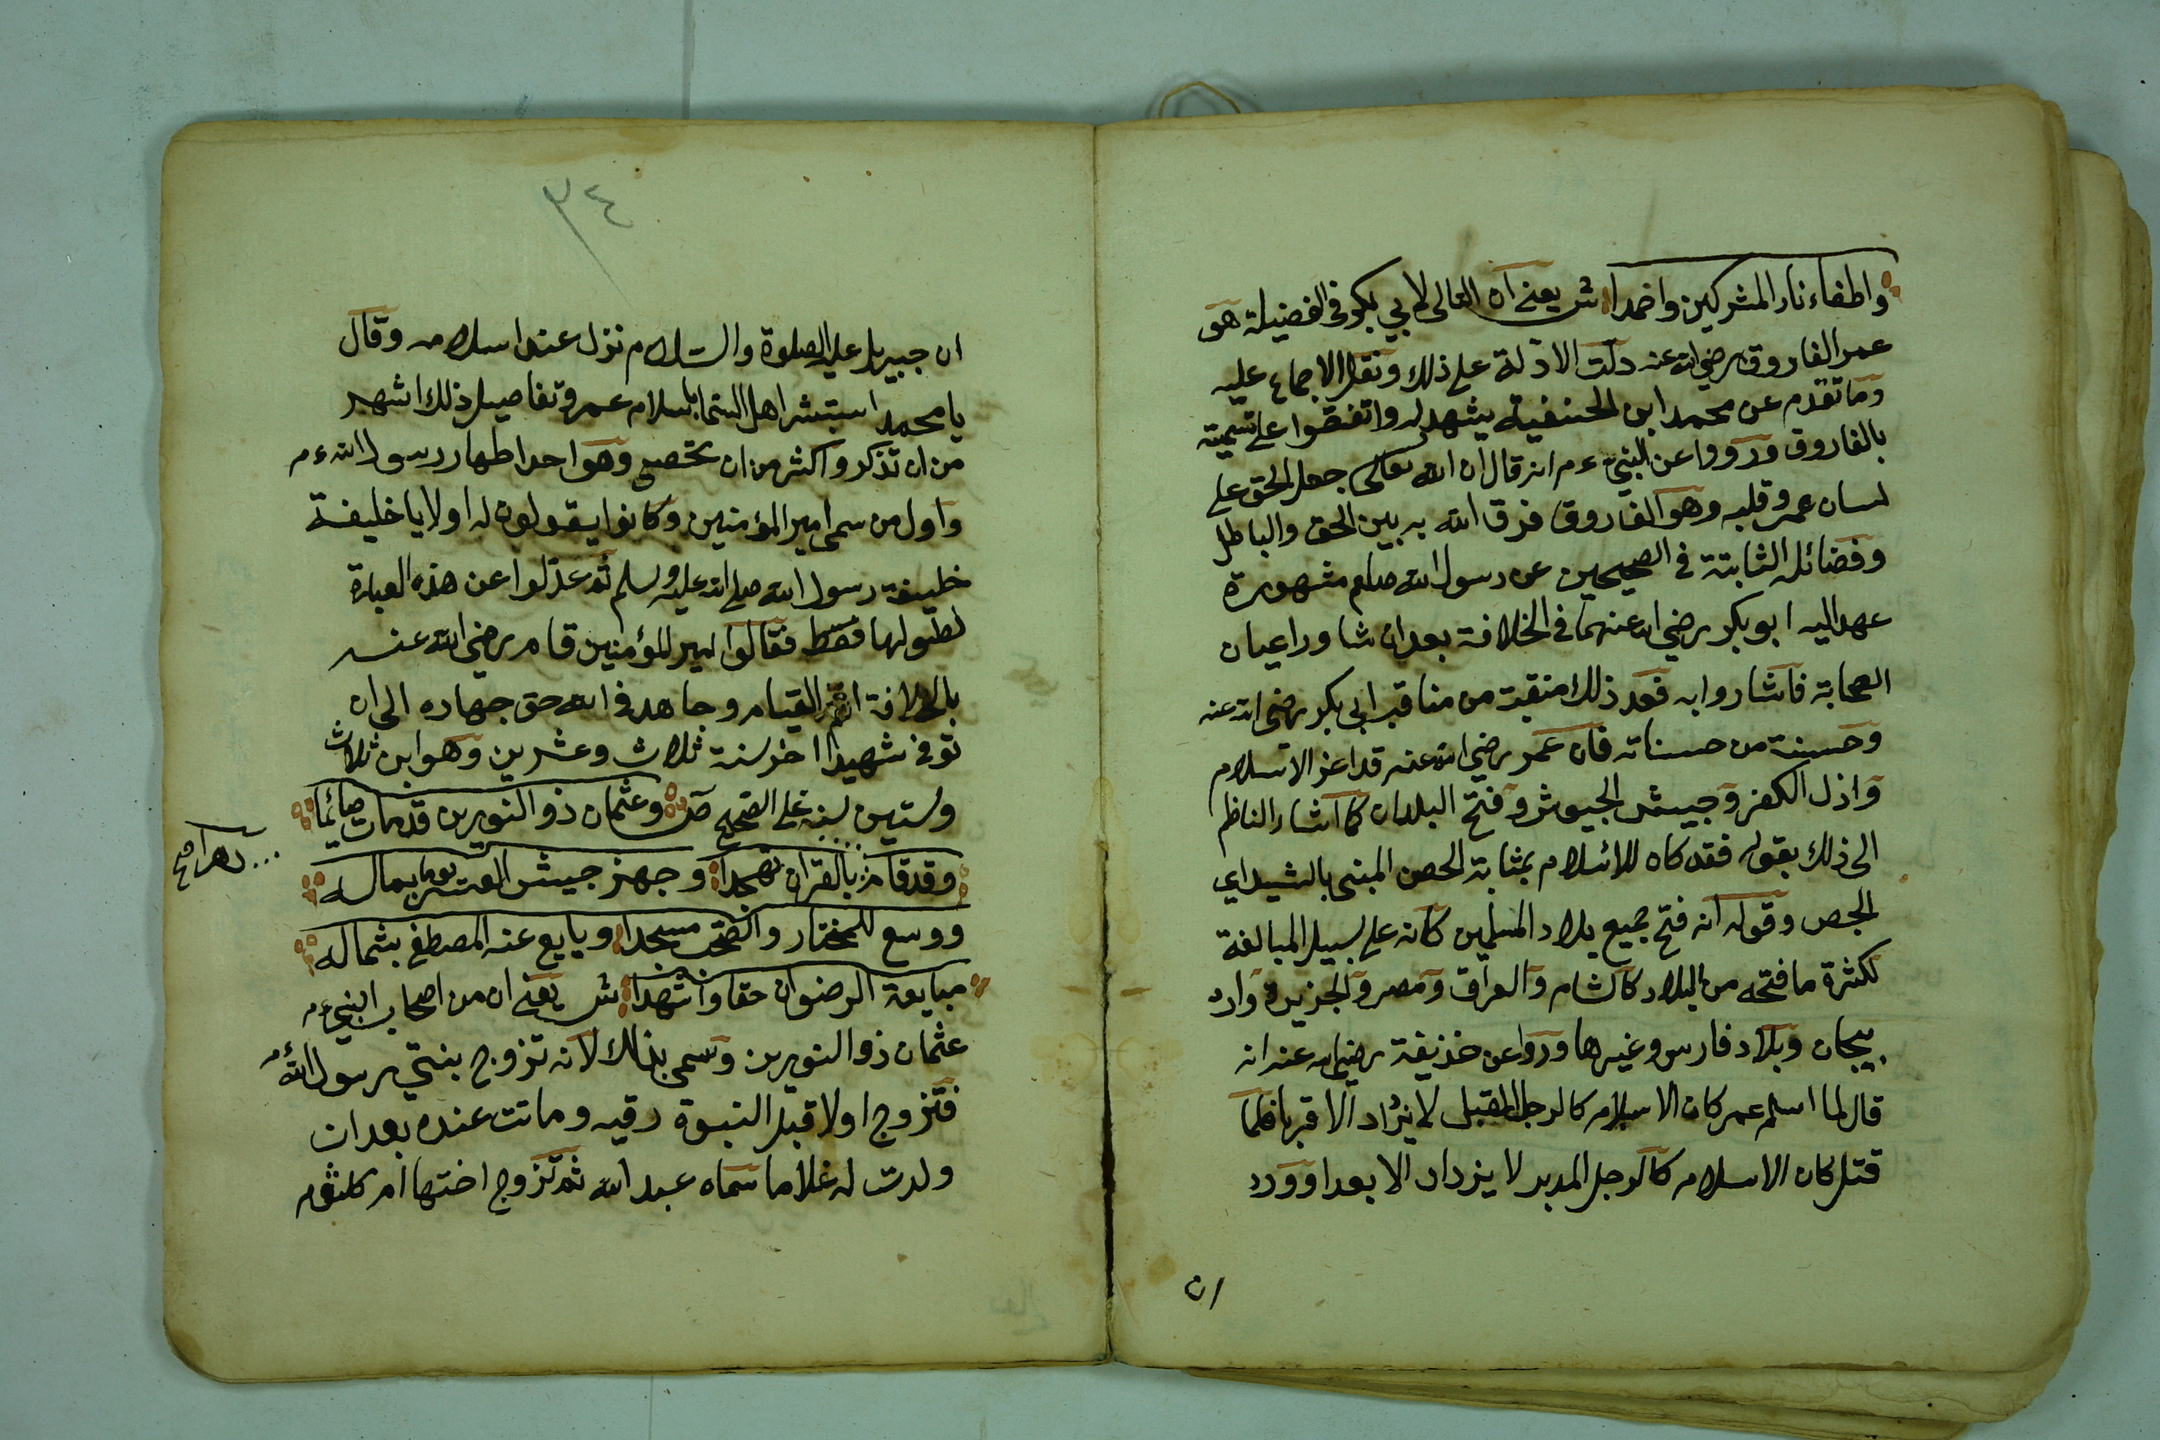 واطفاء نار المشركين واخمدا ش يعني ان التالي لابي بكر في الفضيلة هو
عمر الفاروق رضي الله عنه دلت الادلة على ذلك ونقل الاجماع عليه
وما تقدم عن محمد ابن الحنفية يشهد له واتفقوا على تسميته
بالفاروق ورووا عن النبي ءم انه قال ان الله تعالى جعل الحق على
لسان عمر وقلبه وهو الفاروق فرق الله به بين الحق والباطل
وفضائله الثابتة في الصحيحين عن رسول الله صلعم مشهورة
عهد اليه ابو بكر رضي الله عنهما في الخلافة بعد ان شاور اعيان
الصحابة فاشاروا به فعد ذلك منقبة من مناقب ابي بكر رضي الله عنه
وحسنة من حسناته فان عمر رضي الله عنه قد اعز الاسلام
واذل الكفر وجيش الجيوش وفتح البلدان كما اشار الناظم
الى ذلك بقوله فقد كان للاسلام بمثابة الحصن المبنى بالشيد اي
الجص وقوله انه فتح جميع بلاد المسلمين كانه على سبيل المبالغة
لكثرة ما فتحه من البلاد كالشام والعراق ومصر والجزيرة واذر
بيجان وبلاد فارس وغيرها وروا عن حذيفة رضي الله عنه انه
قال لما اسلم عمر كان الاسلام كالرجل المقبل لا يزداد الا قربا فلما
قتل كان الاسلام كالرجل المدبر لا يزداد الا بعدا وورد
ان
٣٤
ان جبيريل عليه الصلوة والسلام نزل عند اسلامه وقال
يا محمد استبشر اهل السما باسلام عمر وتفاصيل ذلك اشهر
من ان تذكر واكثر من ان تحصى وهو احد اصهار رسول الله ءم
واول من سمى امير المؤمنين وكانوا يقولون له اولا يا خليفة
خليفة رسول الله صلى الله عليه وسلم ثم عدلوا عن هذه العبارة
لطولها فقط فقالوا امير المؤمنين قام رضي الله عنه
بالخلافة اتم القيام وجاهد في الله حق جهاده الى ان
توفى شهيدا اخر سنة ثلاث وعشرين وهو ابن ثلاث
وستين سنة على الصحيح ص وعثمان ذو النورين قد مات صائما
وقد قام بالقران تهجدا وجهز جيش العسر يوما بماله
ووسع للمختار والصحب مسجدا وبايع عنه المصطفى بشماله
مبايعة الرضوان حقا واشهدا ش يعني ان من اصحاب النبي ءم
عثمان ذو النورين وسمى بذلك لانه تزوج بنتي رسول الله ءم
فتزوج اولا قبل النبوة رقيه وماتت عنده بعد ان
ولدت له غلاما سماه عبد الله ثم تزوج اختها ام كلثوم